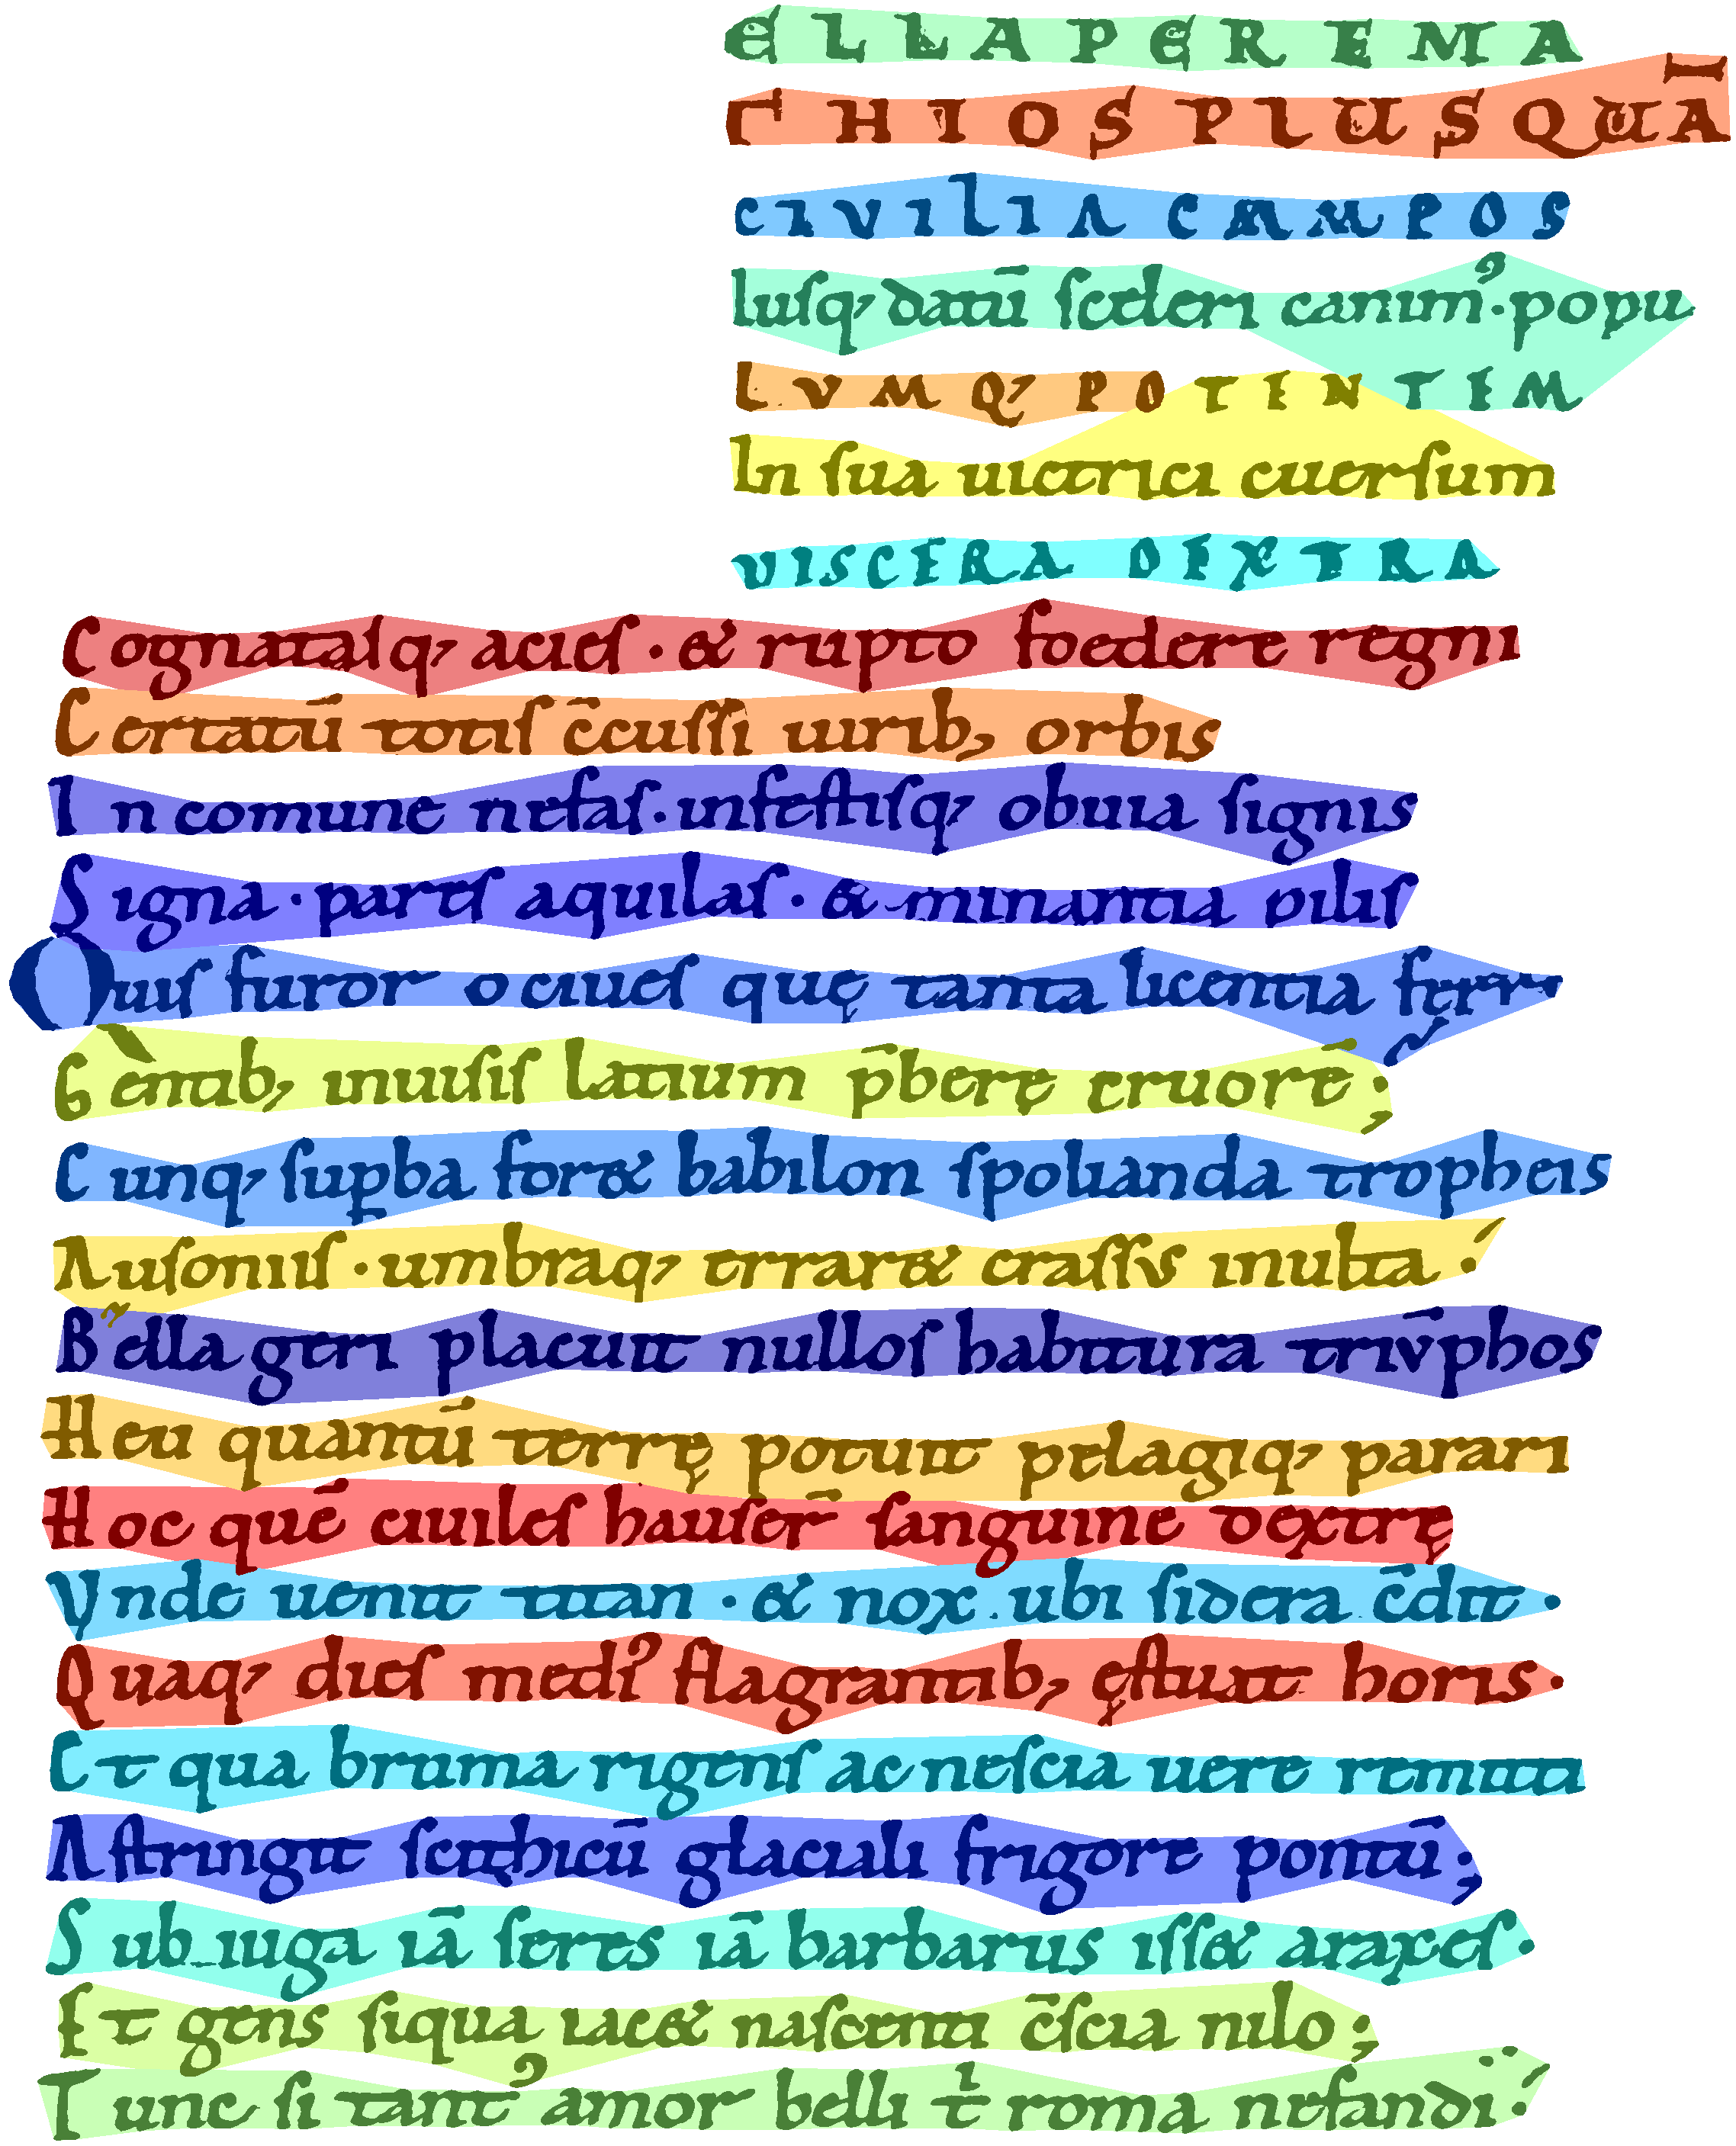 ELLA PER EMA
THIOS PLUS QUĀ
CIVILIA CAMPOS
Iusq; datū sceleri canim᾽· popu
LVMQ; POTENTEM
In sua uictrici cuersum
VISCERA DEXTRA
Cognatasq; acies · & rupto foedere regni
Certatū totis c̄cussi uirib; orbis
In comune nefas · infestisq; obuia signis
Signa · pares aquilas · & minantia pilis
Quis furor o ciues quę tanta licentia ferri
Gentib; inuisis latium p̄bere cruorē;
Cunq; supba foret babilon spolianda tropheis
Ausoniis · umbraq; erraret crassus inulta·
Bella geri placuit nullos habitura triv̄phos
Heu quantū terrę potuit pelagiq; parari
Hoc quē ciuiles hauser̄ sanguine dextrę
Vnde uenit titan · & nox ubi sidera c̄dit ·
Quaq; dies medi᾽ flagrantib; ęstuat horis ·
Et qua bruma rigens ac nescia uere remitti
Astringit scithicū glaciali frigore pontū;
Sub iuga iā seres iā barbarus isset araxes ·
Et gens siqua iacet nascenti c̄scia nilo;
Tunc si tant᾽ amor belli t roma nefandi